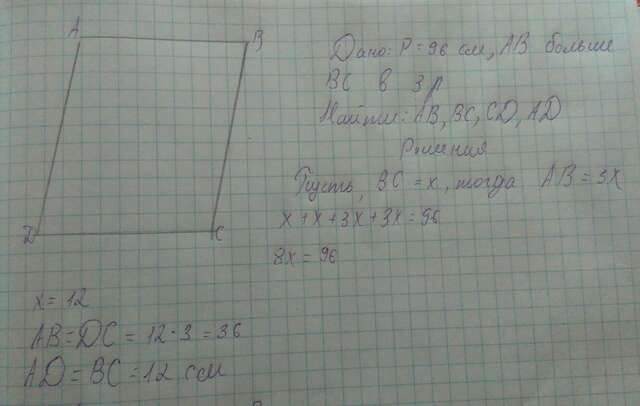 A
B
D
C
Дано: P = 96 см, AB больше
BC в 3 р
Найти: AB, BC, CD, AD
Решения
Пусть, BC = x, тогда AB = 3x
x + x + 3x + 3x = 96
8x = 96
x = 12
AB = DC = 12 · 3 = 36
AD = BC = 12 см